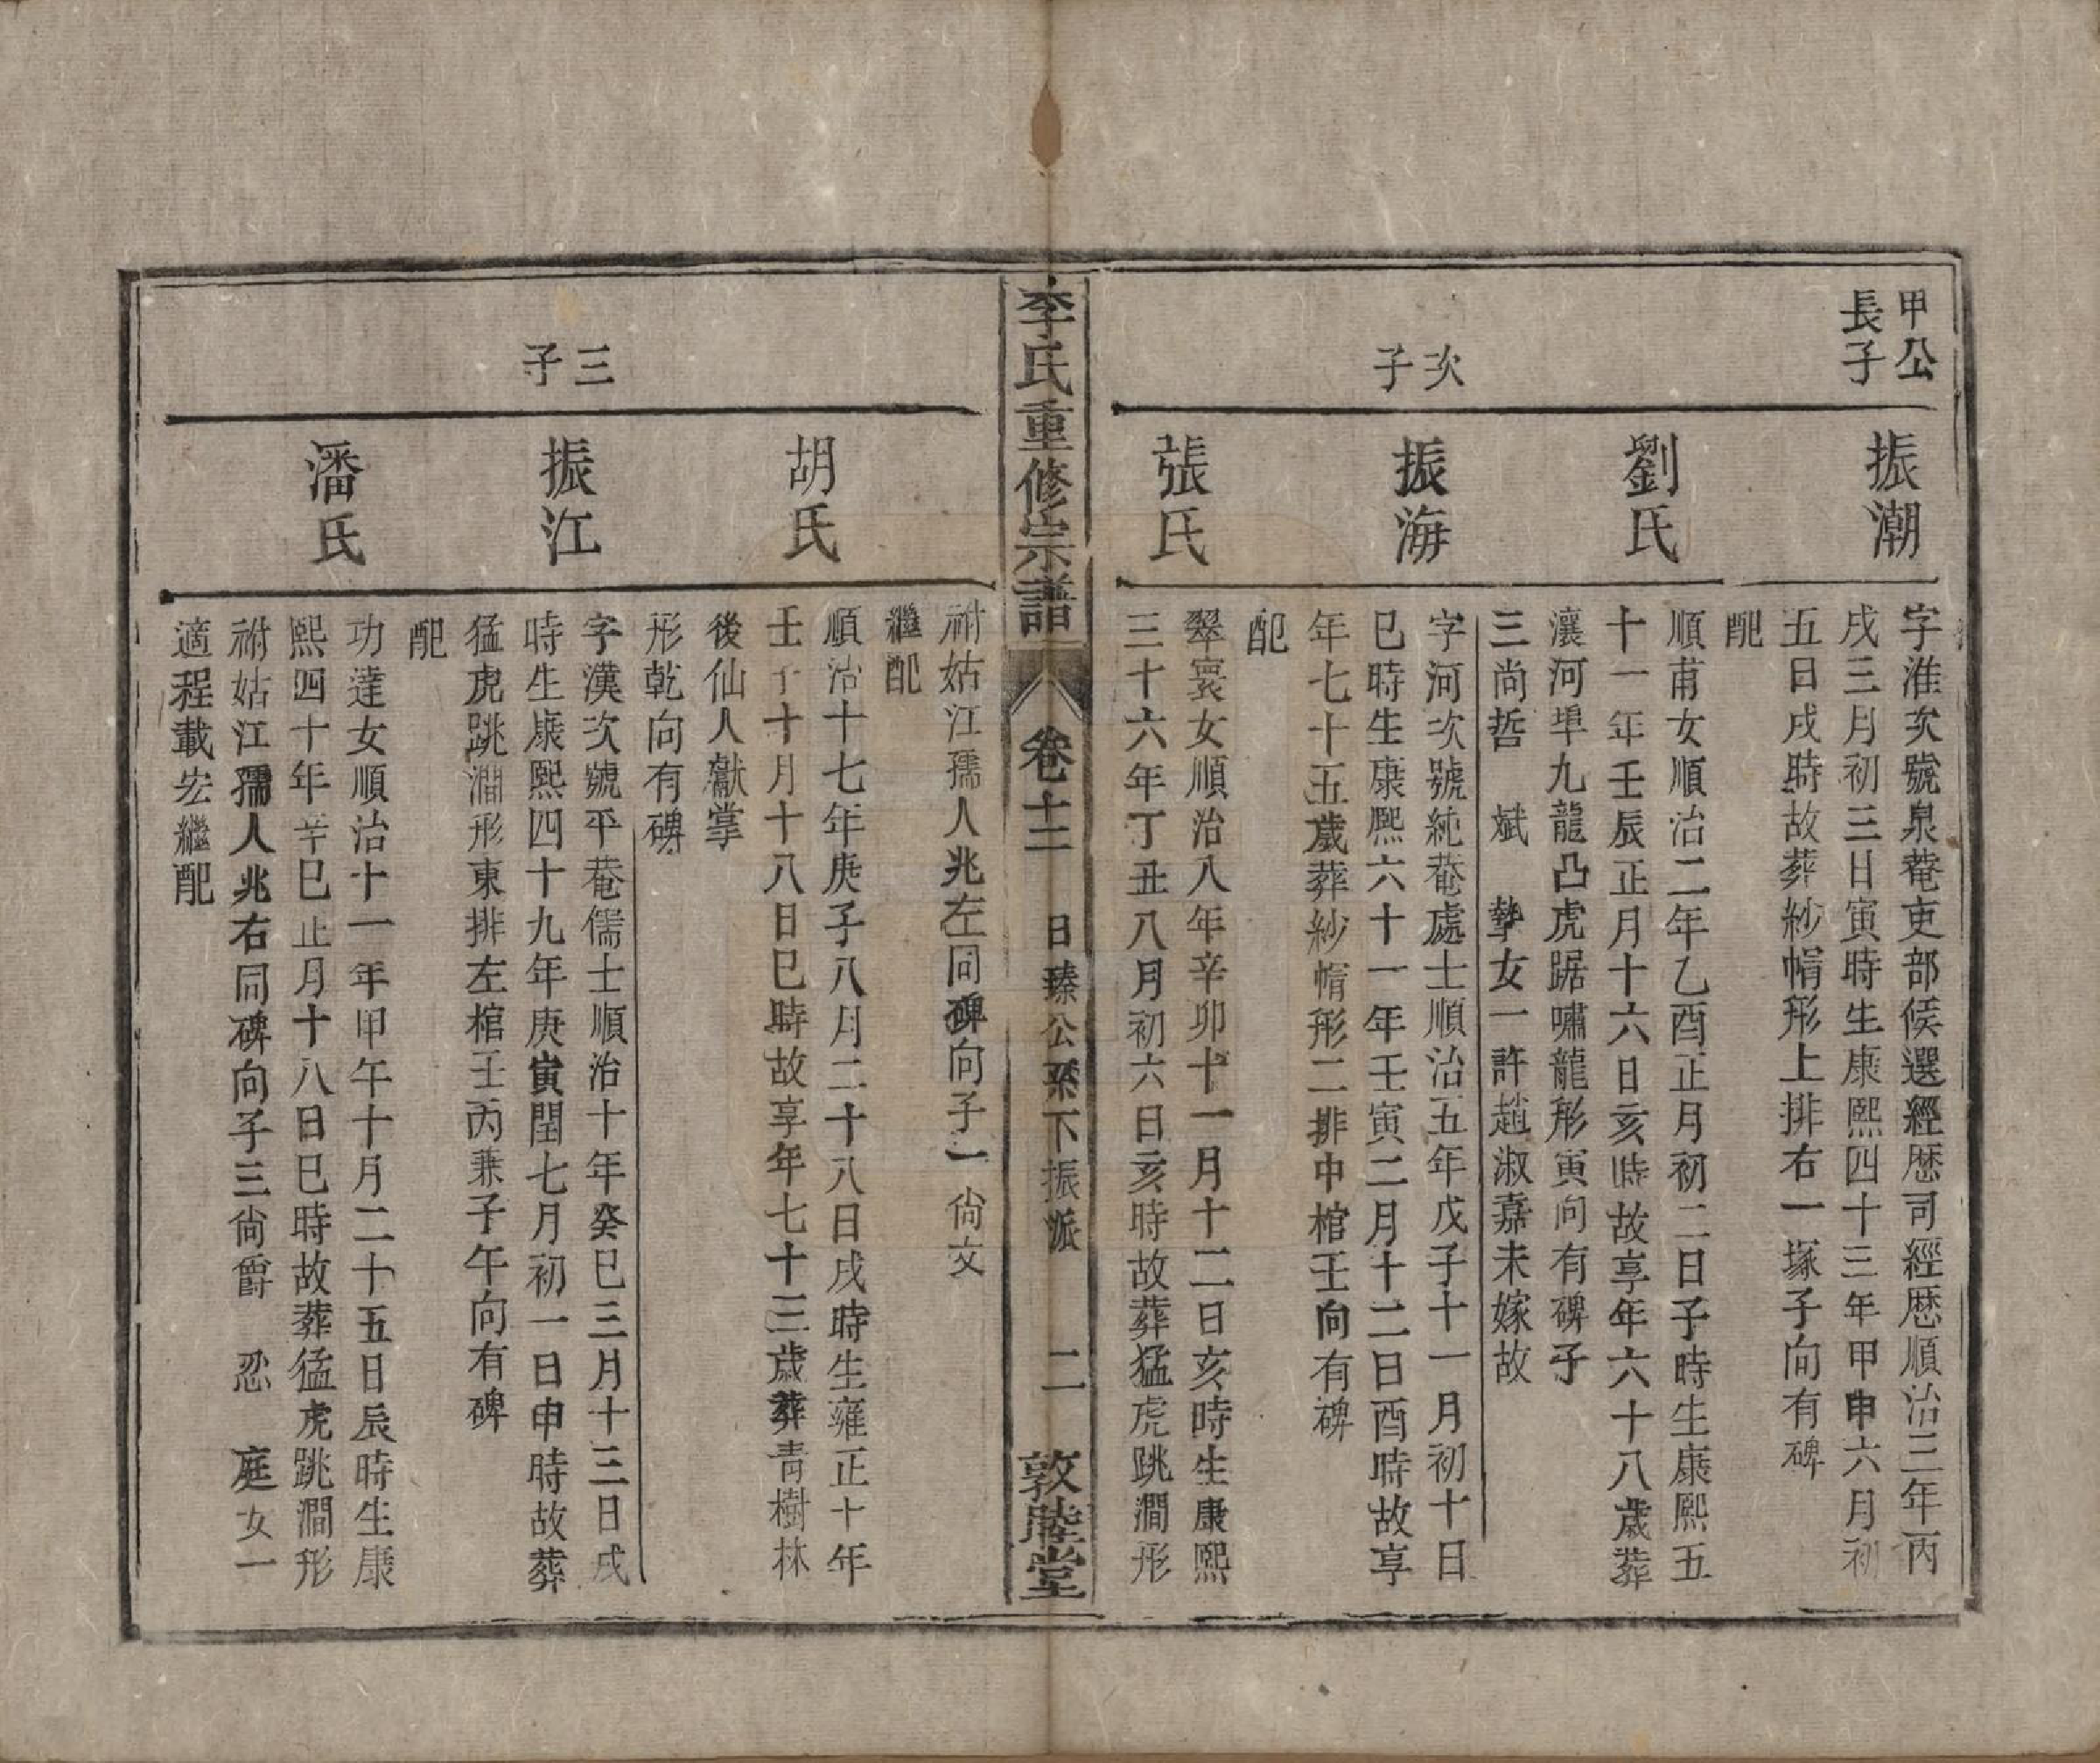 甲公
長子
振潮
字淮次號泉菴吏部候選經歷司經歷順治三年丙
戌三月初三日寅時生康熙四十三年甲申六月初
五日戌時故葬紗帽形上排右一塚子向有碑
配
劉氏
順甫女順治二年乙酉正月初二日子時生康熙五
十一年壬辰正月十六日亥時故享年六十八歲葬
瀼河埠九龍凸虎踞嘯龍形寅向有碑子
三尚哲 斌 摯女一許趙淑嘉未嫁故
次子
振海
字河次號純菴處士順治五年戊子十一月初十日
巳時生康熙六十一年壬寅二月十二日酉時故享
年七十五歲葬紗帽形二排中棺壬向有碑
配
張氏
翠寰女順治八年辛卯十一月十二日亥時生康熙
三十六年丁丑八月初六日亥時故葬猛虎跳澗形
李氏重修宗譜
卷十二
日臻公系下振派
二
敦睦堂
祔姑江孺人兆左同碑向子一尚文
繼配
胡氏
順治十七年庚子八月二十八日戌時生雍正十年
壬子十月十八日巳時故享年七十三歲葬青樹林
後仙人獻掌
形乾向有碑
三子
振江
字漢次號平菴儒士順治十年癸巳三月十三日戌
時生康熙四十九年庚寅閏七月初一日申時故葬
猛虎跳澗形東排左棺壬丙兼子午向有碑
配
潘氏
功達女順治十一年甲午十月二十五日辰時生康
熙四十年辛巳正月十八日巳時故葬猛虎跳澗形
祔姑江孺人兆右同碑向子三尚爵 忍 庭女一
適程載宏繼配